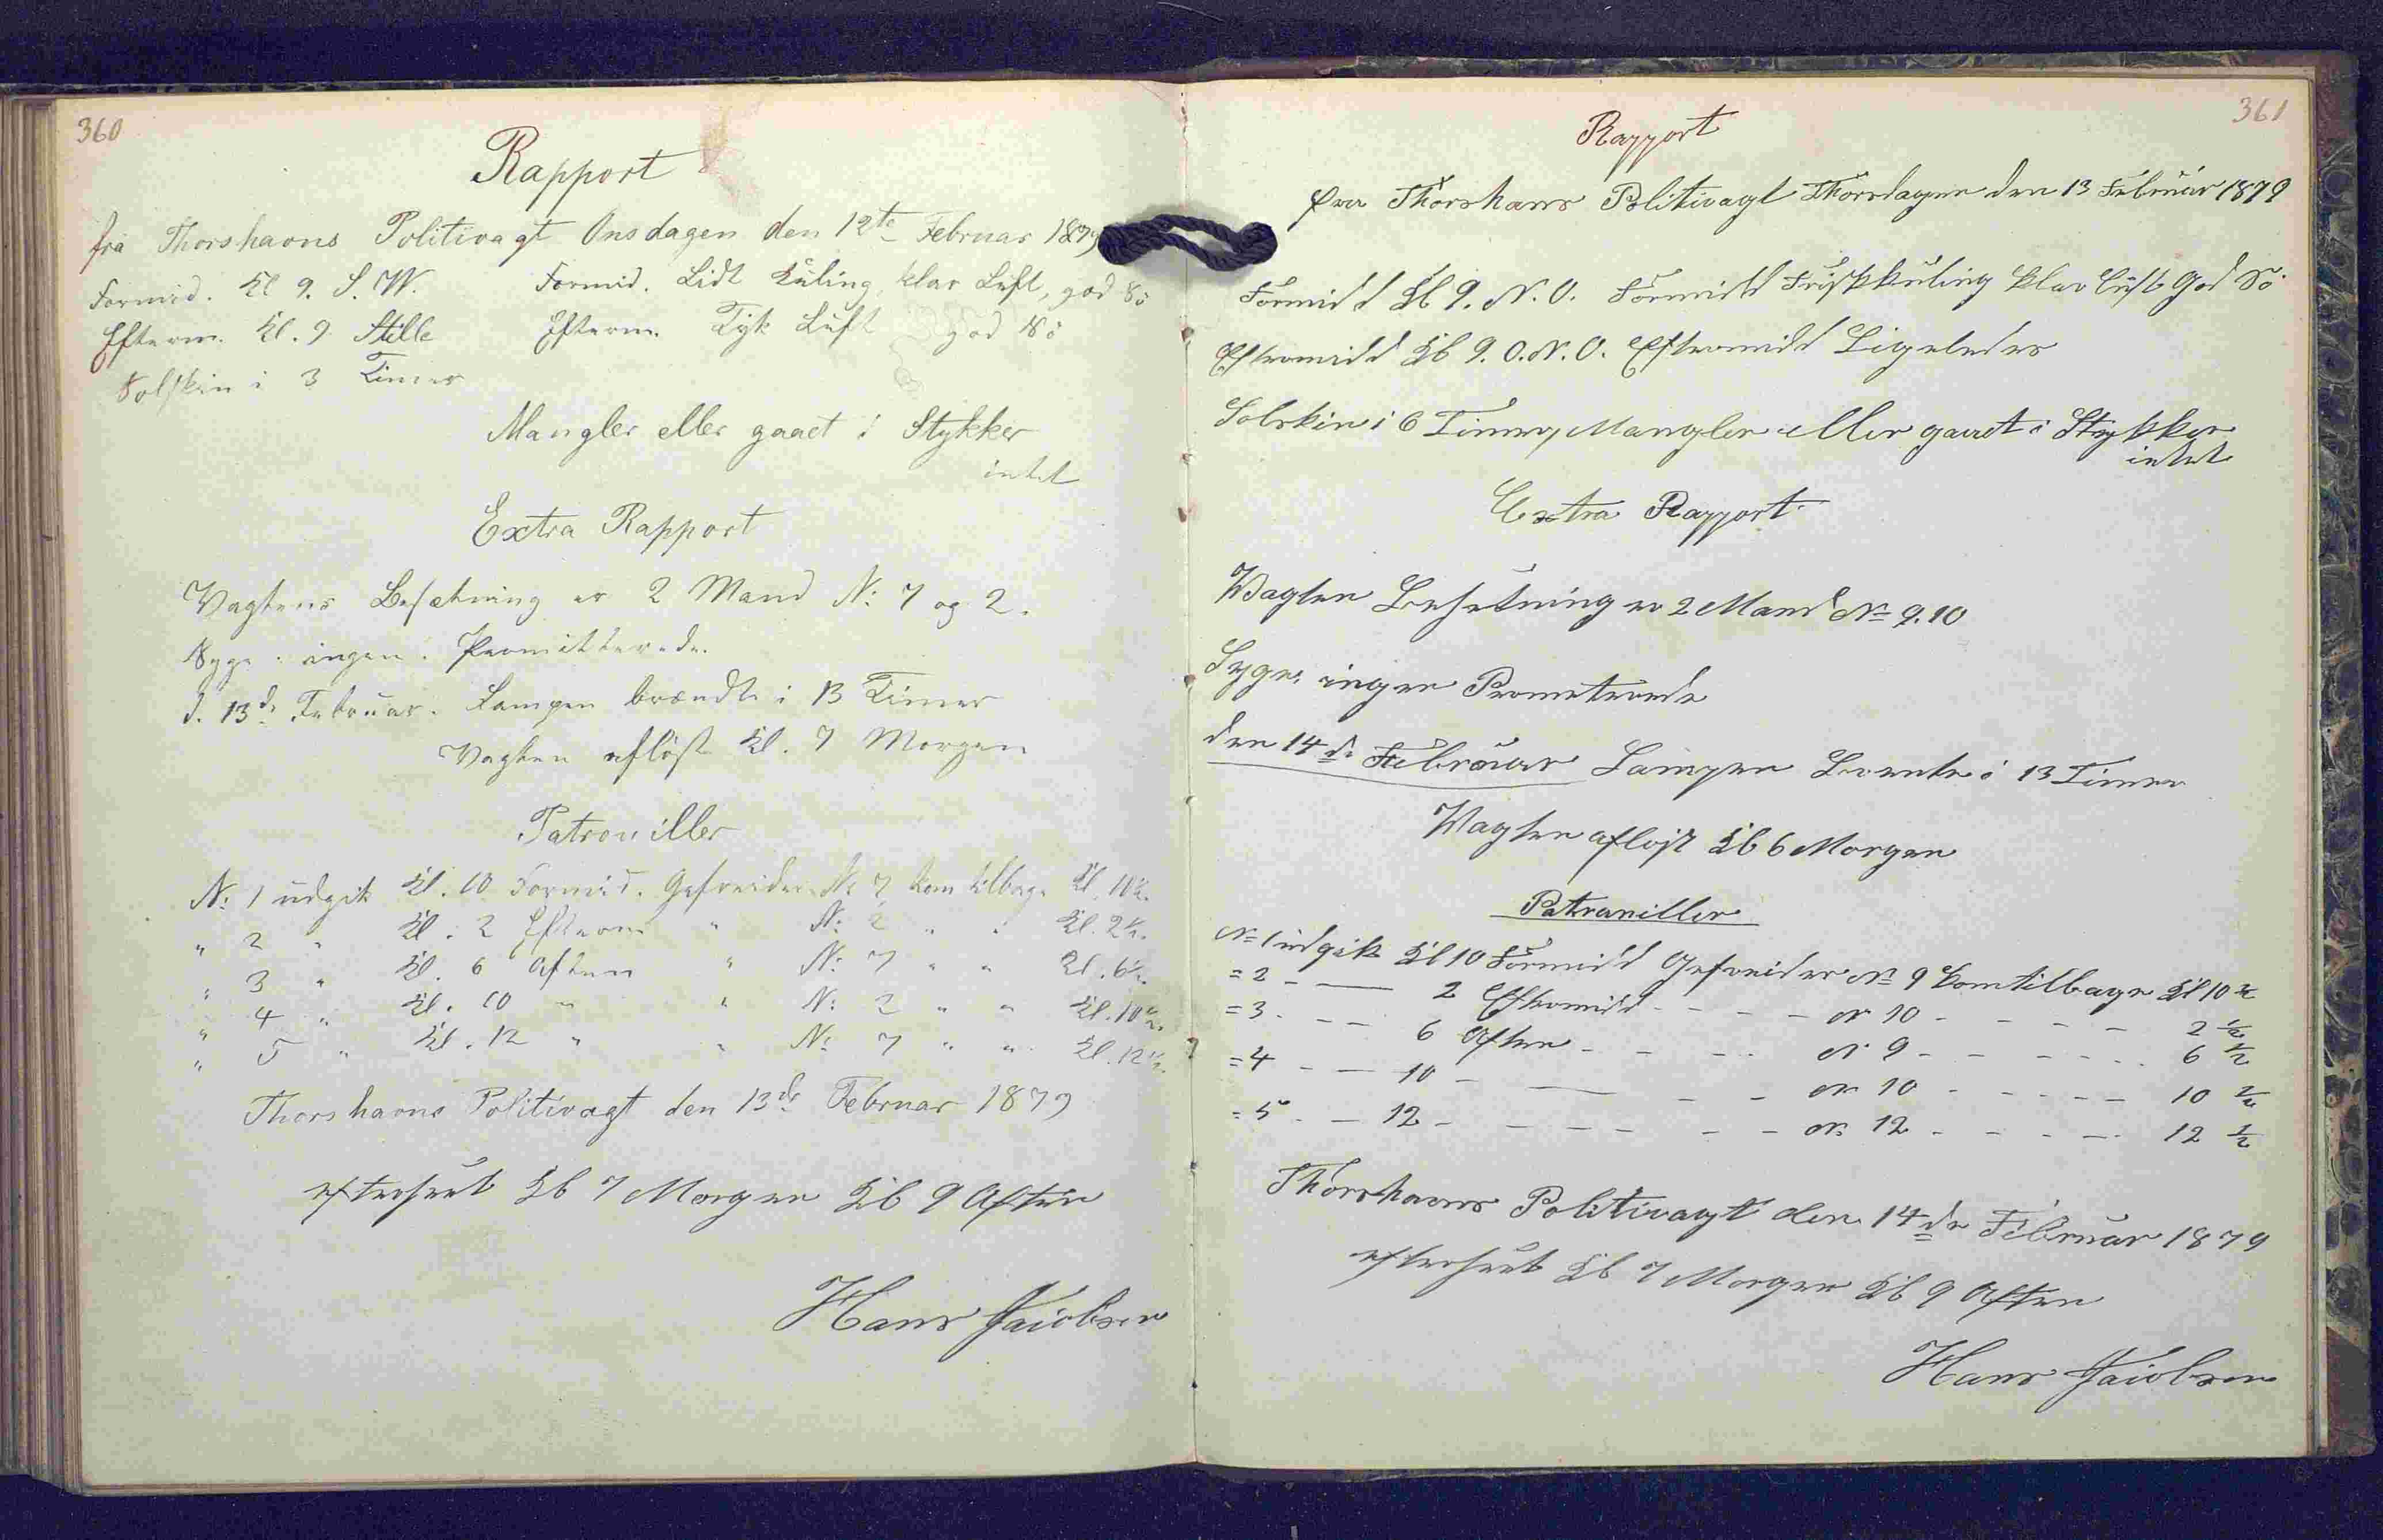 360
Rapport
fra Thorshavns Politivagt Onsdagen den 12te Februar 1879
Formid. Kl 9. S. W. Formid. Lidt Kuling, klar Luft, god Sö
Efterm. Kl. 9 Stille Efterm. Tyk Luft god Sö
Solskin i 3 Timer
Mangler eller gaaet i Stykker
intet
Extra Rapport
Vagtens Besætning er 2 Mand No: 7 og 2.
Syge: ingen. Permitterede.
d. 13de Februar. Lampen brændte i 13 Timer
Vagten aflöst Kl. 7 Morgen
Patrouiller
No: 1 udgik Kl. 10 Formid. Gefreider No 7 kom tilbage Kl. 10½.
" 2 " Kl. 2 Efterm " No: 2 " " Kl. 2½.
" 3 " Kl. 6 Aften " No: 7 " " Kl. 6½.
" 4 " Kl. 10 " " No: 2 " " Kl. 10½.
" 5 " Kl. 12 " " No: 7 " " Kl. 12½.
Thorshavns Politivagt den 13de Februar 1879
efterseet Kl 7 Morgen Kl 9 Aften
Hans Jacobsen
361
Rapport
fra Thorshavns Politivagt Thorsdagen den 13 Februar 1879
Formidd Kl 9. N. O. Formidd Friskkuling klar Luft God Sö
Eftermidd Kl 9. O. N. O. Eftermidd Ligeledes
Solskin i 6 Timer, Mangler eller gaaet i Stykker
intet
Extra Rapport
Vagten Besetning er 2 Mand No 9. 10
Syge, ingen Prometerede
den 14de Februar Lampen Brente i 13 Timer
Vagten aflöst Kl 6 Morgen
Patraniller
No 1 udgik Kl 10 Formidd Gefreider No 9 kom tilbage Kl 10 ½
= 2 - — 2 Eftermidd - - - - N 10 - - - - - 2 ½
= 3 - - - 6 Aften - - - - N 9 - - - - - 6 ½
= 4 - - 10 - — - - N 10 - - - - - 10 ½
= 5 - - 12 - - - - - - N 12 - - - - 12 ½
Thorshavns Politivagt den 14de Februar 1879
efterseet Kl 7 Morgen Kl 9 Aften
Hans Jacobsen